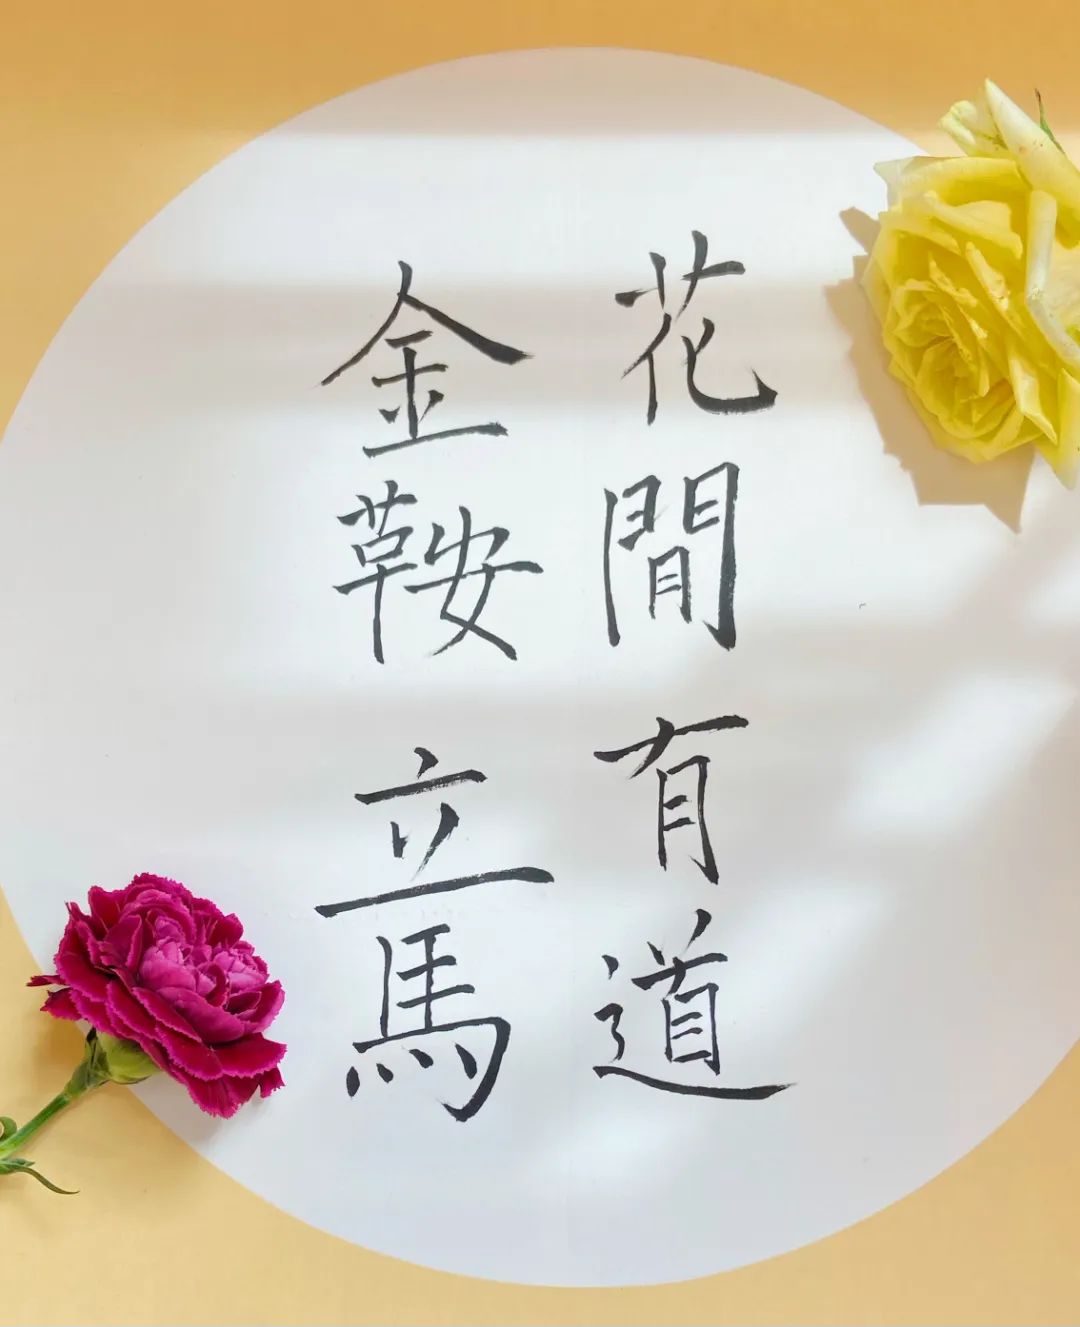 花間有道
金鞍立馬